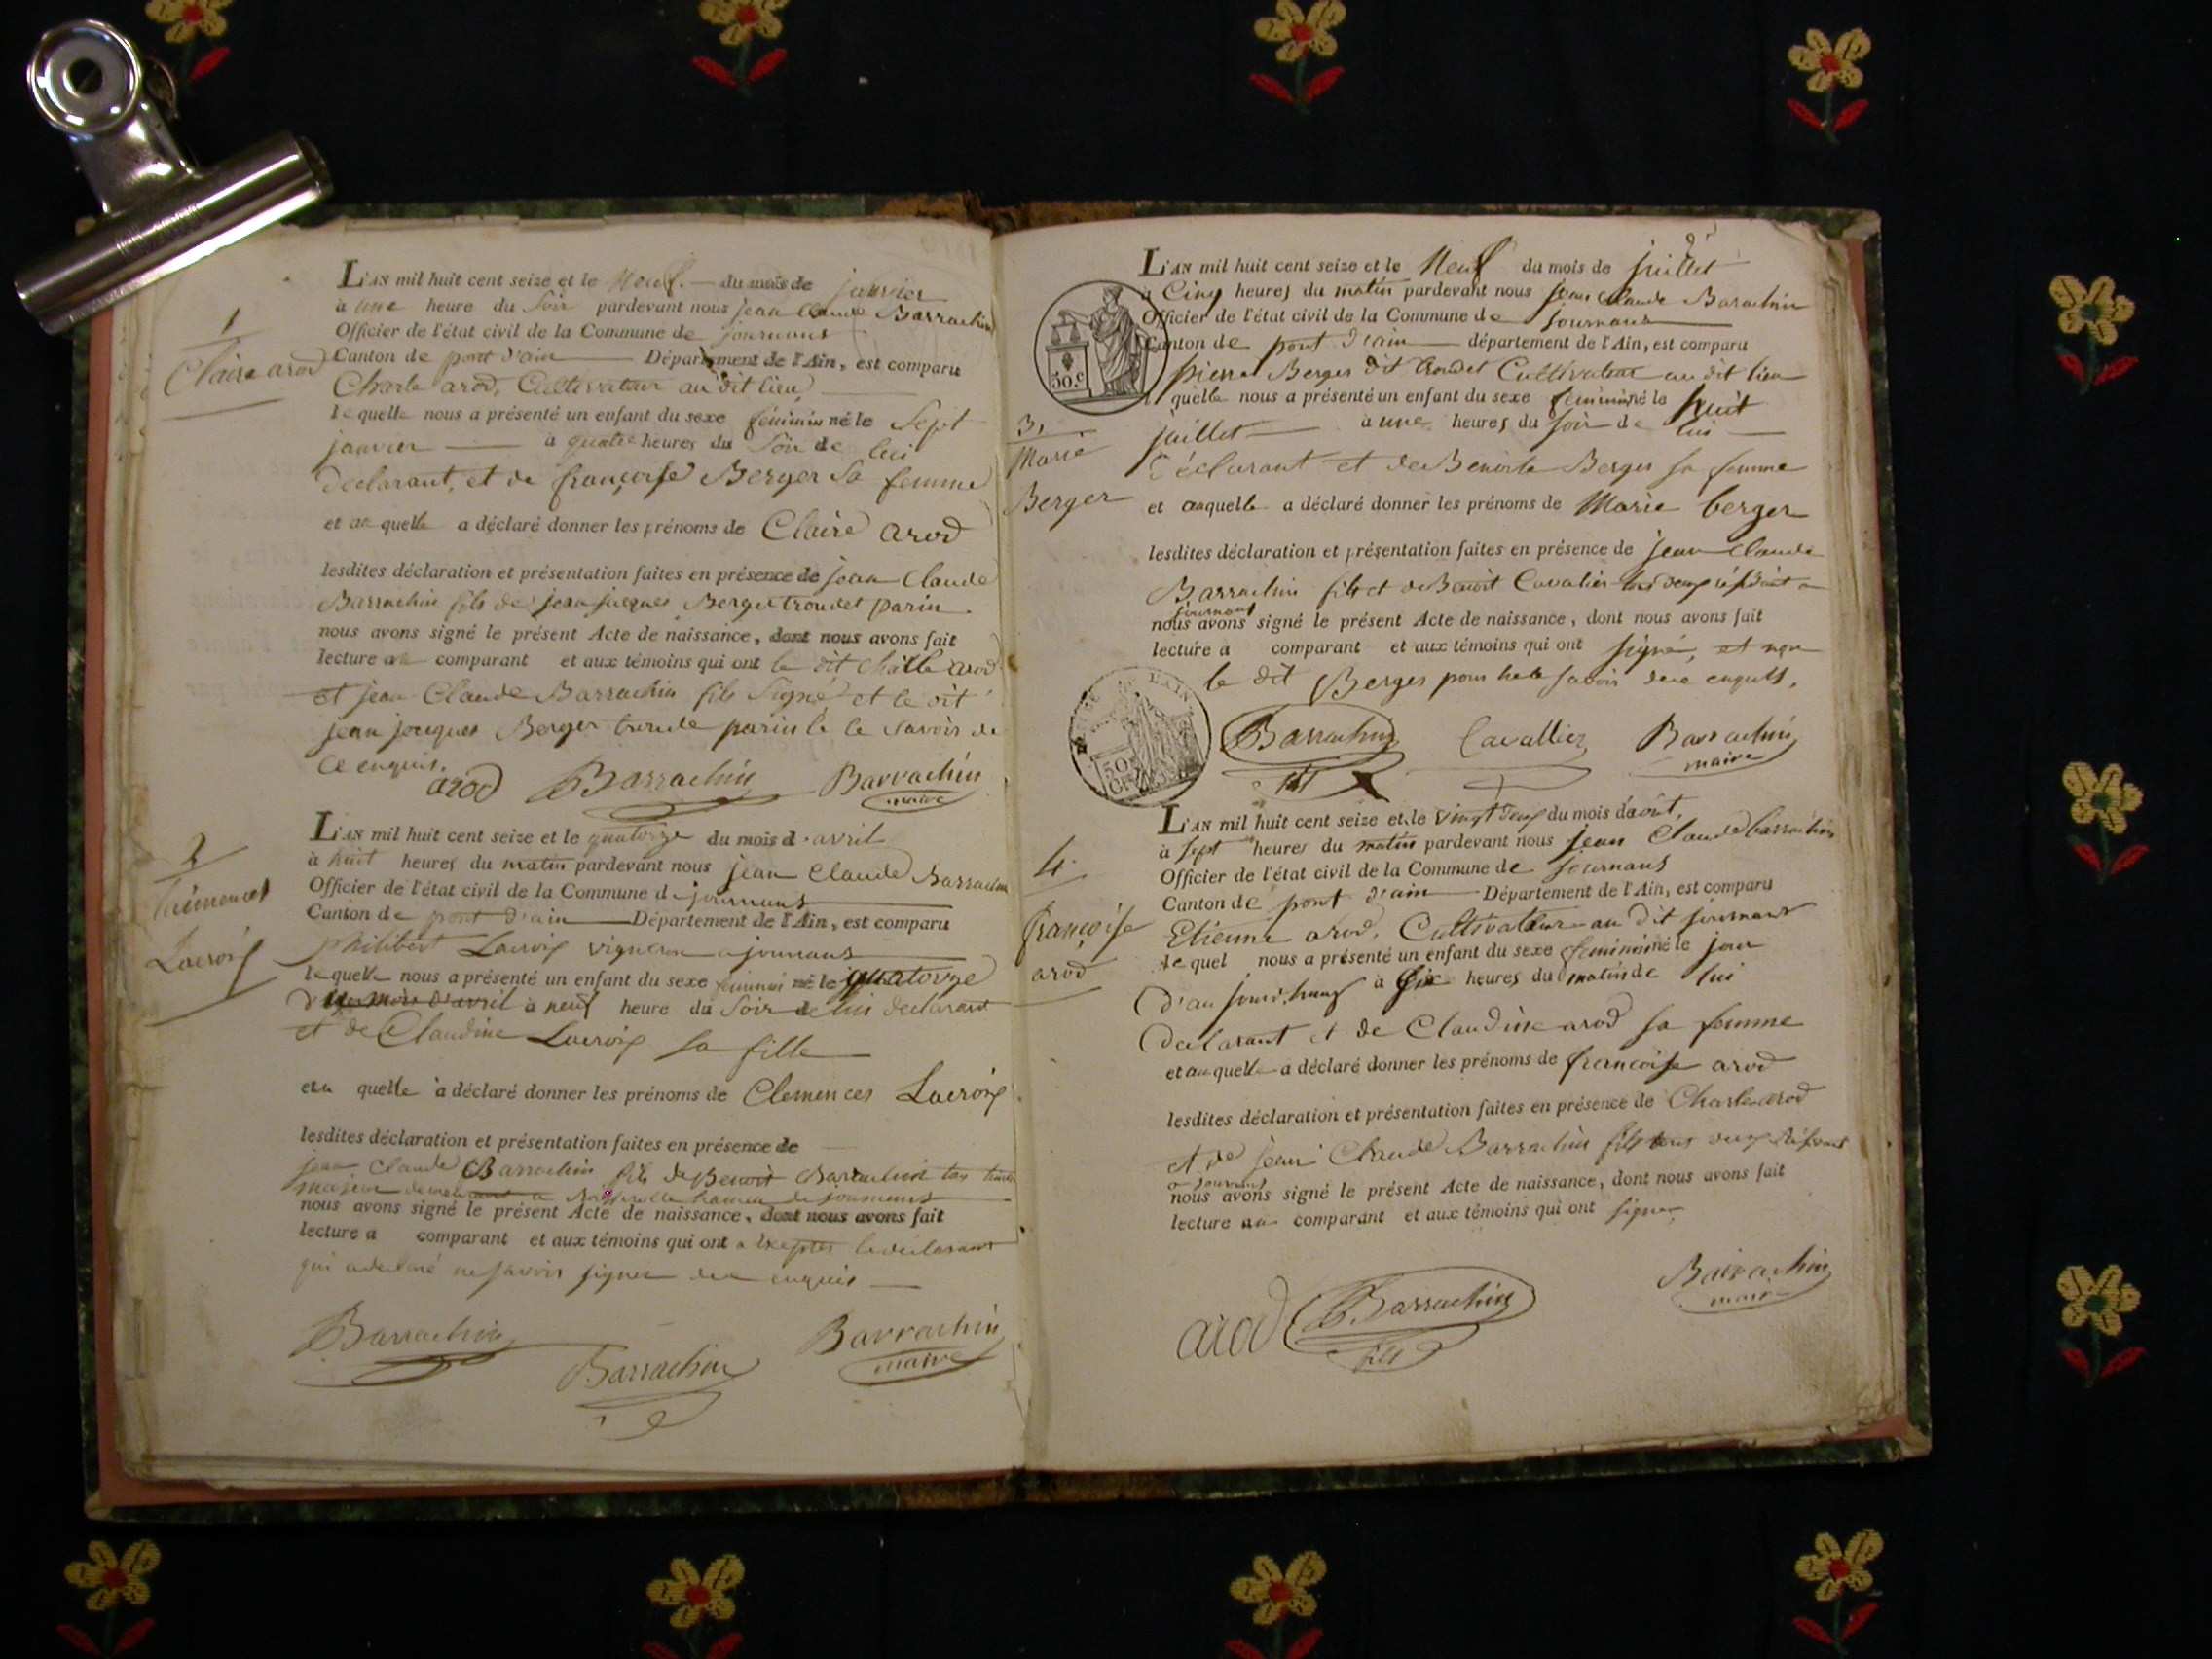 1
Claire arod
L'AN mil huit cent seize et le Neuf. du mois de janvier
à une heure du Soir pardevant nous jean Claude Barrachin
Officier de l'état civil de la Commune de journans
Canton de pont d'ain Département de l'Ain, est comparu
Charle arod, Cultivateur au dit lieu,
lequelle nous a présenté un enfant du sexe féminin né le Sept
janvier à quatre heures du Soir de lui
déclarant, et de françoise Berger Sa femme
et au quelle a déclaré donner les prénoms de Claire arod
lesdites déclaration et présentation faites en présence de jean Claude
Barrachin fils de jean jacques Berger troudet parin
nous avons signé le présent Acte de naissance, dont nous avons fait
lecture au comparant et aux témoins qui ont le dit Charle arod
et jean Claude Barrachin fils Signé et le dit
jean jacques Berger parin le savoir de
ce enquis.
arod Barrachin Barrachin
maire
2
Clémences
Lacroix
L'AN mil huit cent seize et le quatorze du mois d'avril
à huit heures du matin pardevant nous jean Claude Barrachin
Officier de l'état civil de la Commune de journans
Canton de pont d'ain Département de l'Ain, est comparu
philibert Lacroix vigneron a journans
lequelle nous a présenté un enfant du sexe féminin né le quatorze
du mois d'avril à neuf heure du Soir de lui déclarant
et de Claudine Lacroix sa fille
et a quelle a déclaré donner les prénoms de Clemences Lacroix
lesdites déclaration et présentation faites en présence de
jean Claude Barrachin fils de Benoit Barrachin
majeur hameau de journans
nous avons signé le présent Acte de naissance, dont nous avons fait
lecture a comparant et aux témoins qui ont a le déclarant
qui a déclaré ne savoir signer de ce enquis
Barrachin Barrachin Barrachin
maire
3,
Marie
Berger
L'AN mil huit cent seize et le Neuf du mois de juillet
à Cinq heures du matin pardevant nous jean Claude Barachin
Officier de l'état civil de la Commune de journans
Canton de pont d'ain département de l'Ain, est comparu
pierre Berger dit troudet Cultivateur au dit lieu
quelle nous a présenté un enfant du sexe féminin né le huit
juillet à une heures du soir de lui
déclarant et de Benoite Berger sa femme
et auquelle a déclaré donner les prénoms de Marie berger
lesdites déclaration et présentation faites en présence de jean Claude
Barrachin fils et de Benoit Cavalier tous deux a
journans
nous avons signé le présent Acte de naissance, dont nous avons fait
lecture a comparant et aux témoins qui ont signé, et non
le dit Berger pour ne le savoir de ce enquis,
50.c
50 C
DE L'AIN
Barrachin Cavallier Barrachin
fils maire
4.
françoise
arod
L'AN mil huit cent seize et le vingt deux du mois d'août,
à sept heures du matin pardevant nous jean Claude barrachin
Officier de l'état civil de la Commune de journans
Canton de pont d'ain Département de l'Ain, est comparu
Etienne arod, Cultivateur au dit journans
lequel nous a présenté un enfant du sexe féminin né le jour
d'au jourd,huy à six heures du matin de lui
déclarant et de Claudine arod sa femme
et auquelle a déclaré donner les prénoms de françoise arod
lesdites déclaration et présentation faites en présence de Charle arod
et de jean Claude Barrachin fils tous deux
a journans
nous avons signé le présent Acte de naissance, dont nous avons fait
lecture au comparant et aux témoins qui ont signer
arod Barrachin Barrachin
fils maire